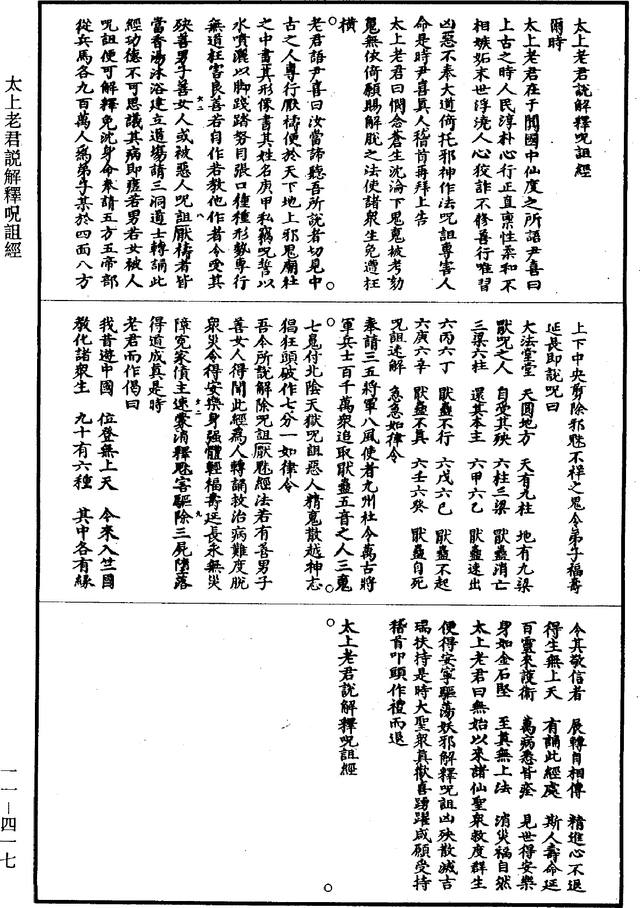 太上老君說解釋呪詛經
爾時
太上老君在于闐國中仙度之所語尹喜曰
上古之時人民淳朴心行正直禀性柔和不
相嫉妬末世浮澆人心狡詐不修善行唯習
凶惡不奉大道倚托邪神作法呪詛專害人
命是時尹喜真人稽首再拜上告
太上老君曰憫念蒼生沈淪下思鬼被考劾
魂無依倚願賜解脫之法使諸衆生免遭枉
橫
老君語尹喜曰汝當諦聽吾所說者切見中
古之人專行厭禱便於天下地上邪思廟社
之中書其形像書其姓名庚甲私竊呪誓以
水噴灑以脚踐踏努目張口種種形勢專行
無道枉害良善若自作若教他作者令受其
殃善男子善女人或被惡人呪詛厭禱者皆
當香湯沐浴建立道塲請三洞道士轉誦此
經功德不可思議其病即瘥若男若女被人
呪詛便可解釋免沈身命奉請五方五帝部
從兵馬各九百萬人爲弟子某於四面八方
上下中央剪除邪魅不祥之鬼令弟子福壽
延長即說呪曰
大法堂堂 天圓地方 天有九柱 地有九梁
獸呪之人 自受其殃 六柱三梁 獸蠱消亡
三梁六柱 還其本主 六甲六乙 獸蠱速出
六丙六丁 獸蠱不行 六戊六己 獸蠱不起
六庚六辛 獸蠱不真 六壬六癸 獸蠱自死
呪詛速解 急急如律令
奉請三五將軍八風使者九州社令萬古將
軍兵士百千萬衆追取獸蠱五音之人三魂
七鬼付北陰天獄呪詛惡人精鬼散越神志
猖狂頭破作七分一如律令
吾今所說解除呪詛厭魅經法若有善男子
善女人得聞此經爲人轉誦救治病難度脫
衆災令得安樂身强體輕福壽延長永無災
障寃家債主速蒙消釋魃客驅除三屍墮落
得道成真是時
老君而作偈曰
我昔遊中國 位登無上天 今來入竺國
教化諸衆生 九十有六種 其中各有緣
令其敬信者 展轉自相傳 精進心不退
得生無上天 有誦此經處 斯人壽命延
百靈來護衛 萬病悉皆痊 見世得安樂
身如金石堅 至真無上法 消災福自然
太上老君曰無始以來諸仙聖衆救度群生
便得安寧驅蕩妖邪解釋呪詛凶殃散滅吉
瑞扶持是時大聖衆真歡喜踴躍咸願受持
稽首叩頭作禮而退
太上老君說解釋呪詛經
太上老君說解釋呪詛經
一一—四一七